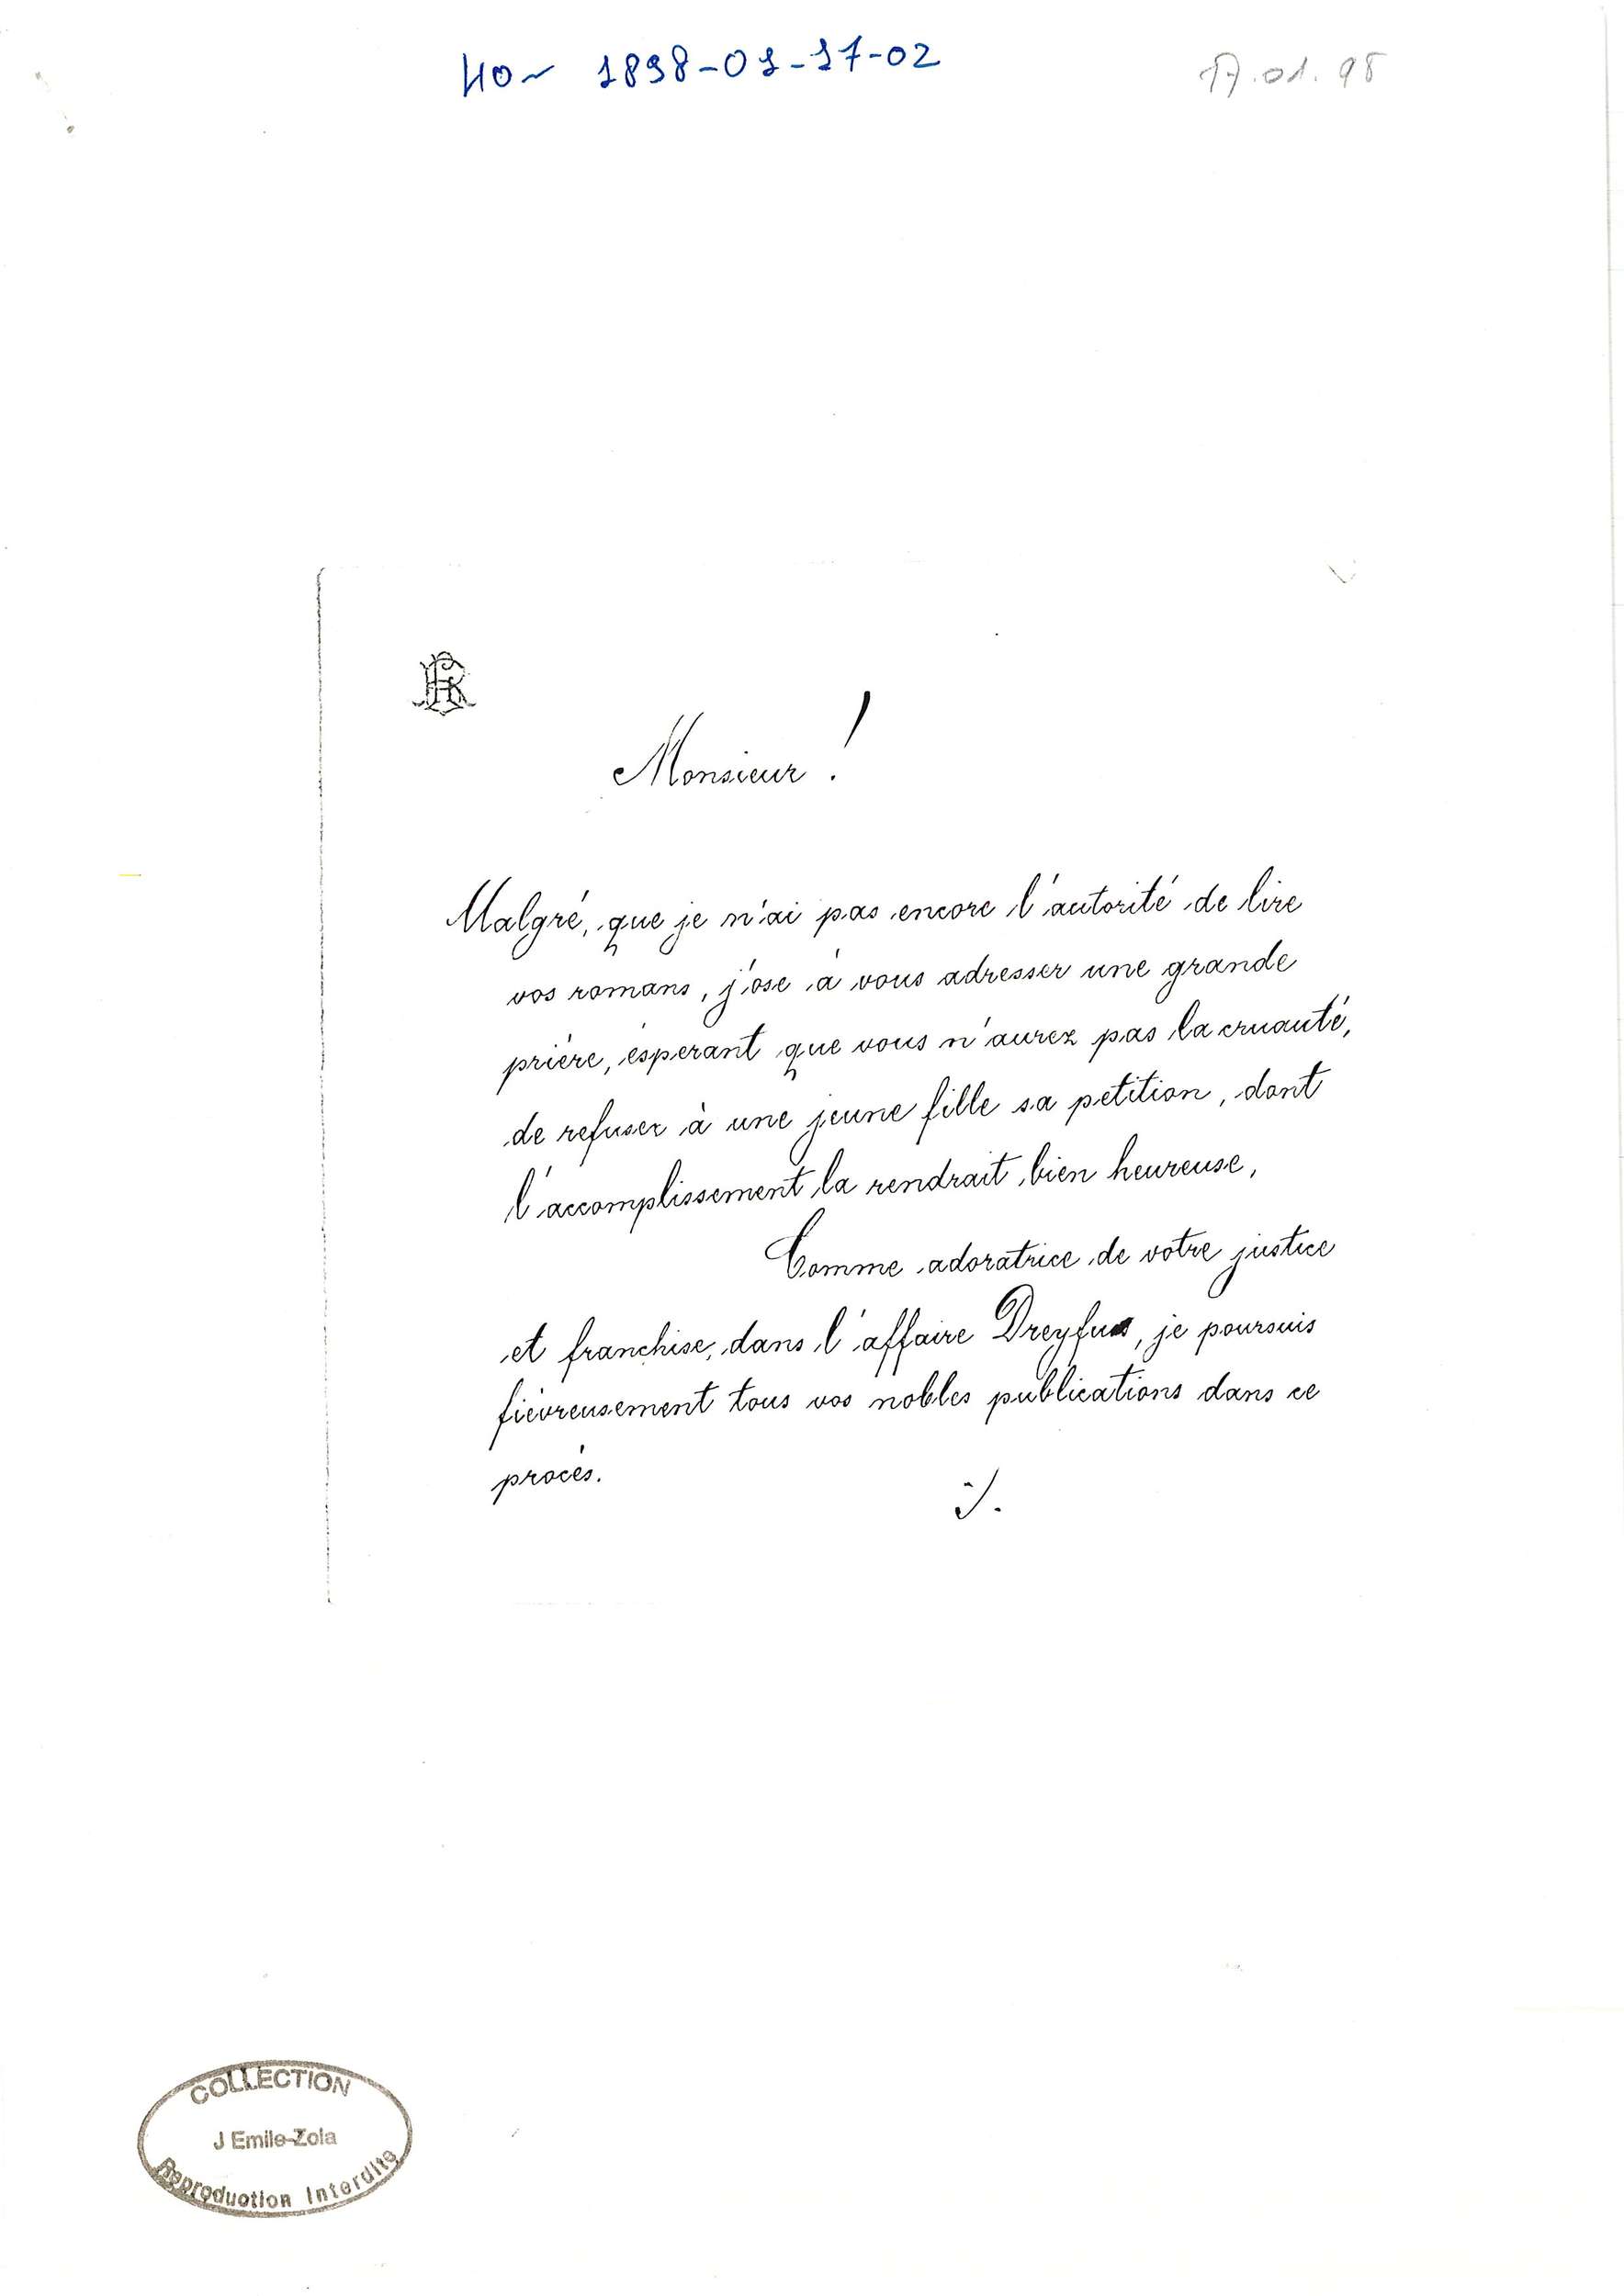 HO~ 1898-01-17-02
17.01.98
Monsieur !
Malgré, que je n'ai pas encore l'autorité de lire
vos romans, j'ose à vous adresser une grande
prière, ésperant que vous n'aurez pas la cruauté,
de refuser à une jeune fille sa petition, dont
l'accomplissement la rendrait bien heureuse,
Comme adoratrice de votre justice
et franchise, dans l'affaire Dreyfus, je poursuis
fiévreusement tous vos nobles publications dans ce
procès.
COLLECTION
J Emile-Zola
Reproduction Interdite